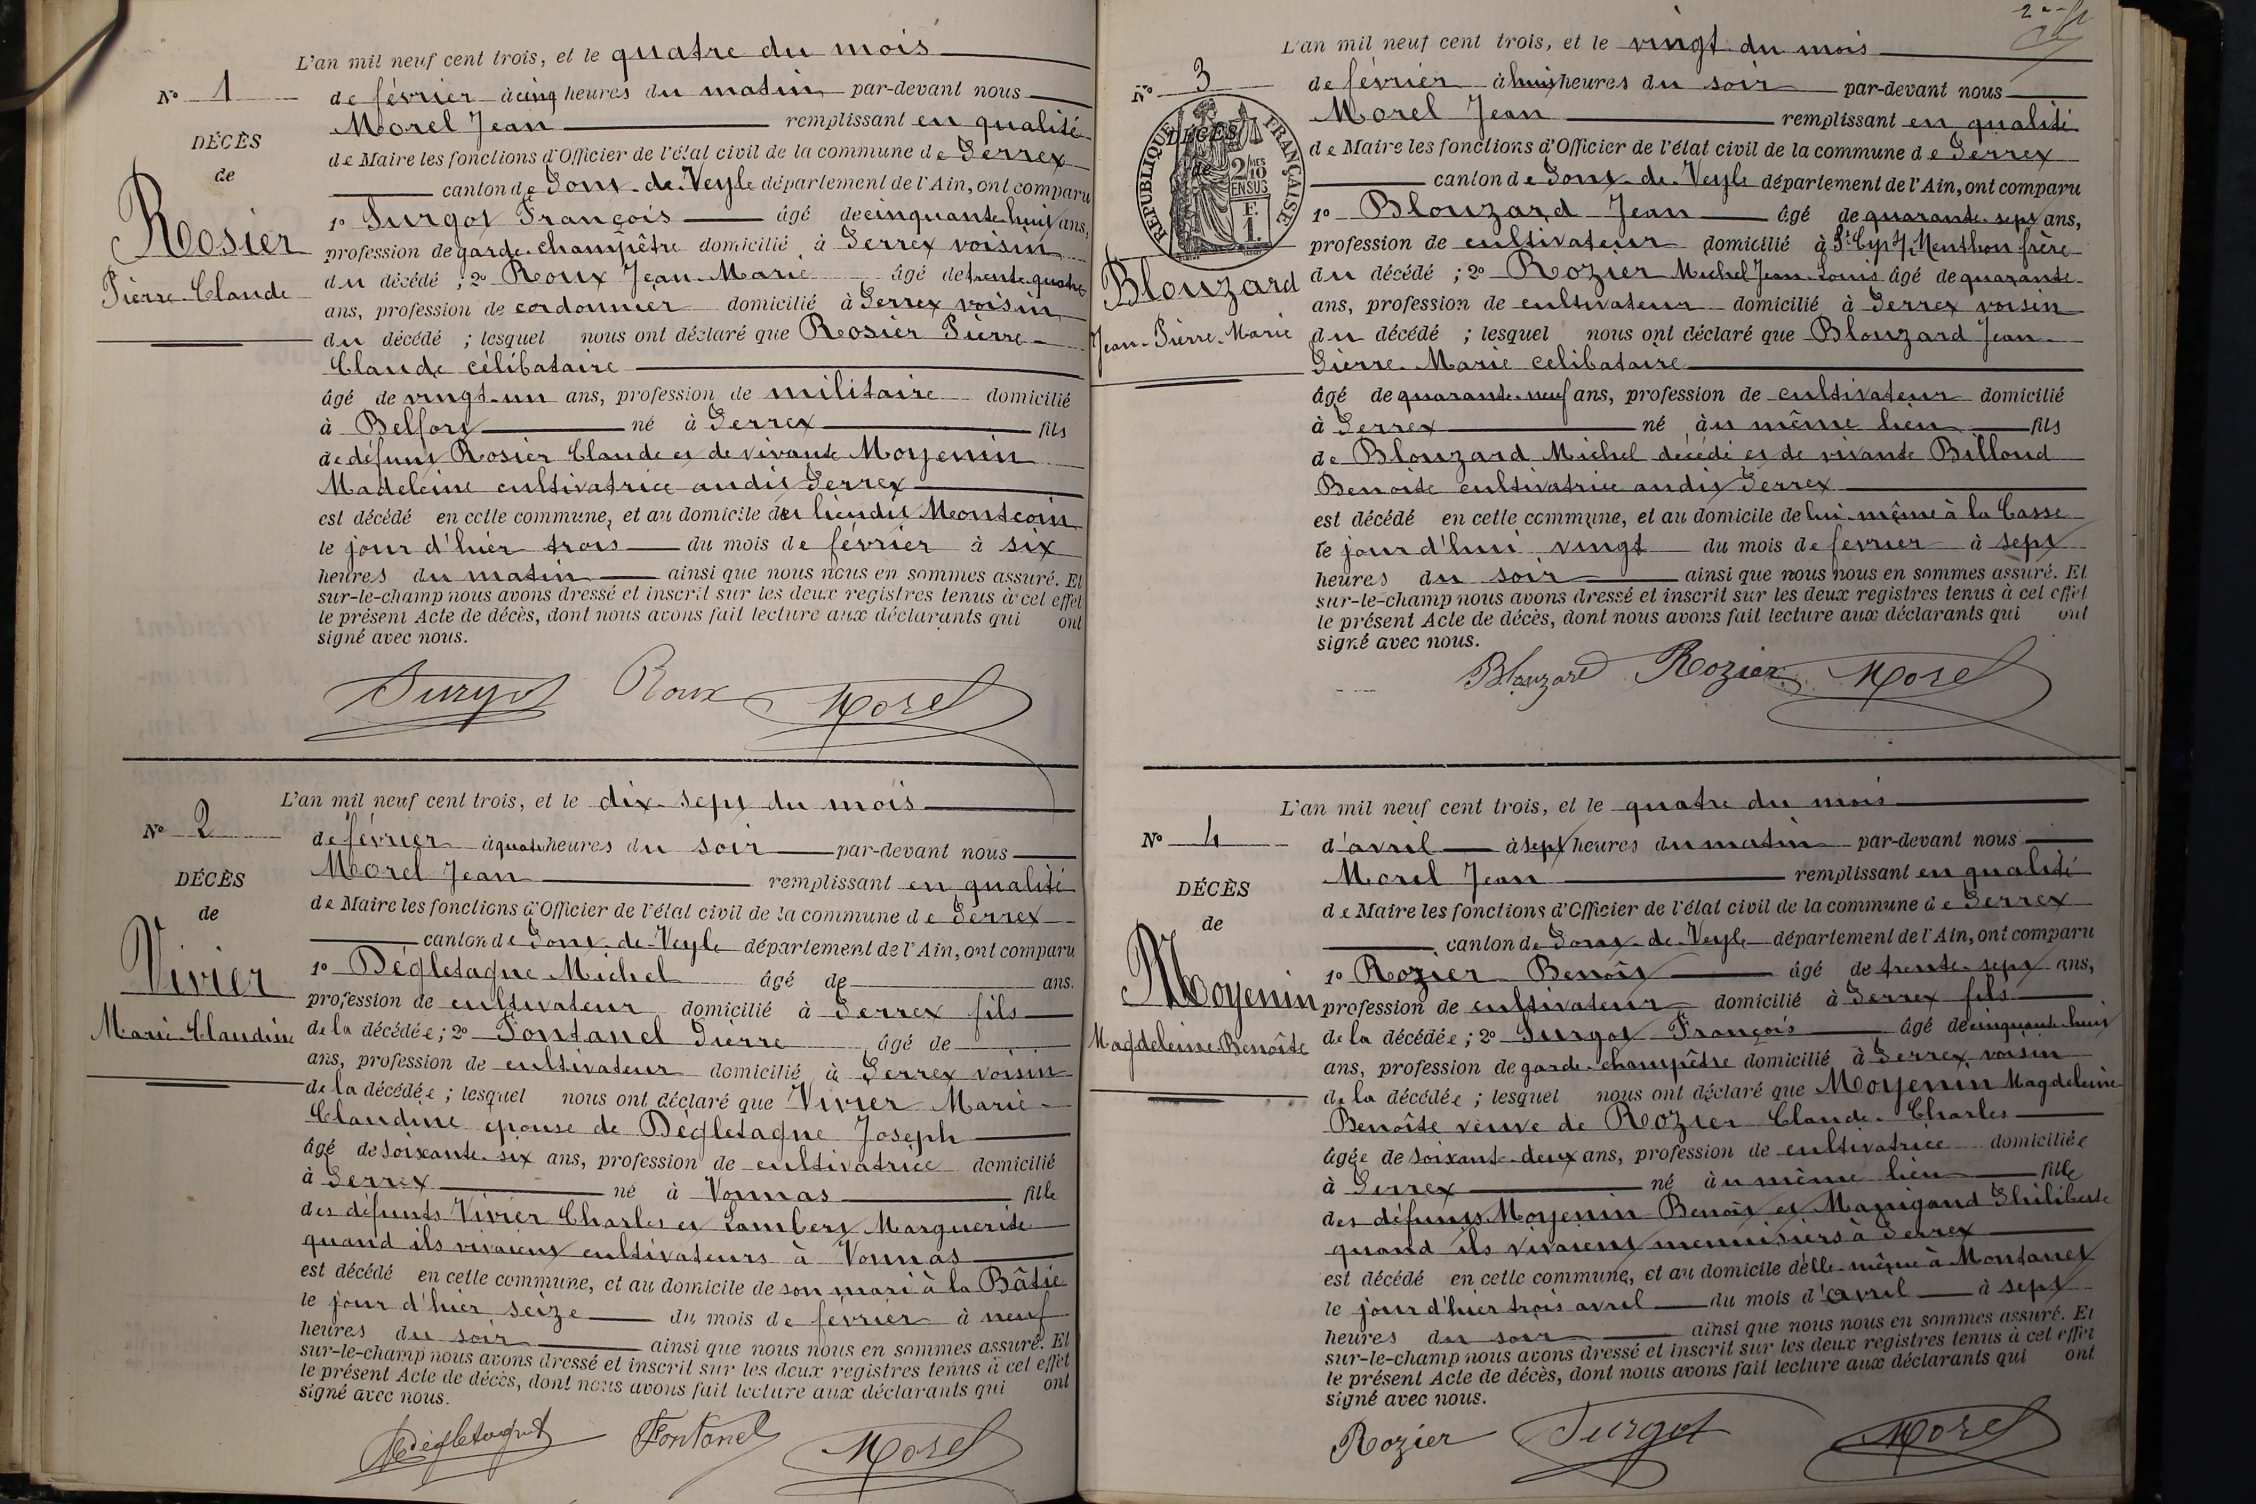 L'an mil neuf cent trois, et le quatre du mois
N° 1
de février à cinq heures du matin par-devant nous
Morel Jean remplissant en qualité
DÉCÈS
de Maire les fonctions d'Officier de l'état civil de la commune de Perrex
de
canton de Pont-de-Veyle département de l'Ain, ont comparu
Rosier
1° Surgot François âgé de cinquante-huit ans,
profession de garde-champêtre domicilié à Perrex voisin
Pierre-Claude
du décédé ; 2° Roux Jean-Marie âgé de trente-quatre
ans, profession de cordonnier domicilié à Perrex voisin
du décédé ; lesquel nous ont déclaré que Rosier Pierre-
Claude célibataire
âgé de vingt-un ans, profession de militaire domicilié
à Belfort né à Perrex fils
de défunt Rosier Claude et de vivante Moyenin
Madeleine cultivatrice audit Perrex
est décédé en cette commune, et au domicile du lieudit Montcoin
le jour d'hier trois du mois de février à six
heures du matin ainsi que nous nous en sommes assuré. Et
sur-le-champ nous avons dressé et inscrit sur les deux registres tenus à cet effet
le présent Acte de décès, dont nous avons fait lecture aux déclarants qui ont
signé avec nous.
Surgot Roux Morel
L'an mil neuf cent trois, et le dix-sept du mois
N° 2
de février à quatre heures du soir par-devant nous
Morel Jean remplissant en qualité
DÉCÈS
de Maire les fonctions d'Officier de l'état civil de la commune de Perrex
de
canton de Pont-de-Veyle département de l'Ain, ont comparu
Vivier
1° Dégletagne Michel âgé de ans.
profession de cultivateur domicilié à Perrex fils
Marie-Claudine
de la décédée ; 2° Fontanel Pierre âgé de
ans, profession de cultivateur domicilié à Perrex voisin
de la décédée ; lesquel nous ont déclaré que Vivier Marie-
Claudine épouse de Dégletagne Joseph
âgé de soixante-six ans, profession de cultivatrice domicilié
à Perrex né à Vonnas fille
des défunts Vivier Charles et Lambert Marguerite
quand ils vivaient cultivateurs à Vonnas
est décédé en cette commune, et au domicile de son mari à la Bâtie
le jour d'hier seize du mois de février à neuf
heures du soir ainsi que nous nous en sommes assuré. Et
sur-le-champ nous avons dressé et inscrit sur les deux registres tenus à cet effet
le présent Acte de décès, dont nous avons fait lecture aux déclarants qui ont
signé avec nous.
Fontanel Morel
L'an mil neuf cent trois, et le vingt du mois
N° 3
de février à huit heures du soir par-devant nous
Morel Jean remplissant en qualité
DÉCÈS
de
RÉPUBLIQUE FRANÇAISE
2/10 MES
EN SUS
F.
1.
de Maire les fonctions d'Officier de l'état civil de la commune de Perrex
canton de Pont-de-Veyle département de l'Ain, ont comparu
1° Blouzard Jean âgé de quarante-sept ans,
profession de cultivateur domicilié à St Cyr s/ Menthon frère
Blouzard
du décédé ; 2° Rozier Michel Jean Louis âgé de quarante
ans, profession de cultivateur domicilié à Perrex voisin
Jean-Pierre-Marie
du décédé ; lesquel nous ont déclaré que Blouzard Jean-
Pierre-Marie celibataire
âgé de quarante-neuf ans, profession de cultivateur domicilié
à Perrex né au même lieu fils
de Blouzard Michel décédé et de vivante Billoud
Benoite cultivatrice audit Perrex
est décédé en cette commune, et au domicile de lui-même à la Casse
le jour d'hui vingt du mois de fevrier à sept
heures du soir ainsi que nous nous en sommes assuré. Et
sur-le-champ nous avons dressé et inscrit sur les deux registres tenus à cet effet
le présent Acte de décès, dont nous avons fait lecture aux déclarants qui ont
signé avec nous.
Blouzard Rozier Morel
L'an mil neuf cent trois, et le quatre du mois
N° 4
d'avril à sept heures du matin par-devant nous
Morel Jean remplissant en qualité
DÉCÈS
de Maire les fonctions d'Officier de l'état civil de la commune de Perrex
de
canton de Pont-de-Veyle département de l'Ain, ont comparu
Moyenin
1° Rozier Benoît âgé de trente-sept ans,
profession de cultivateur domicilié à Perrex fils
Magdeleine Benoîte
de la décédée ; 2° Surgot François âgé de cinquante-huit
ans, profession de garde-champêtre domicilié à Perrex voisin
de la décédée ; lesquel nous ont déclaré que Moyenin Magdeleine
Benoîte veuve de Rozier Claude-Charles
âgée de soixante-deux ans, profession de cultivatrice domiciliée
à Perrex né au même lieu fille
des défunts Moyenin Benoît et Manigand Philiberte
quand ils vivaient menuisiers à Perrex
est décédé en cette commune, et au domicile d'elle-même à Montanet
le jour d'hier trois avril du mois d'avril à sept
heures du soir ainsi que nous nous en sommes assuré. Et
sur-le-champ nous avons dressé et inscrit sur les deux registres tenus à cet effet
le présent Acte de décès, dont nous avons fait lecture aux déclarants qui ont
signé avec nous.
Rozier Surgot Morel